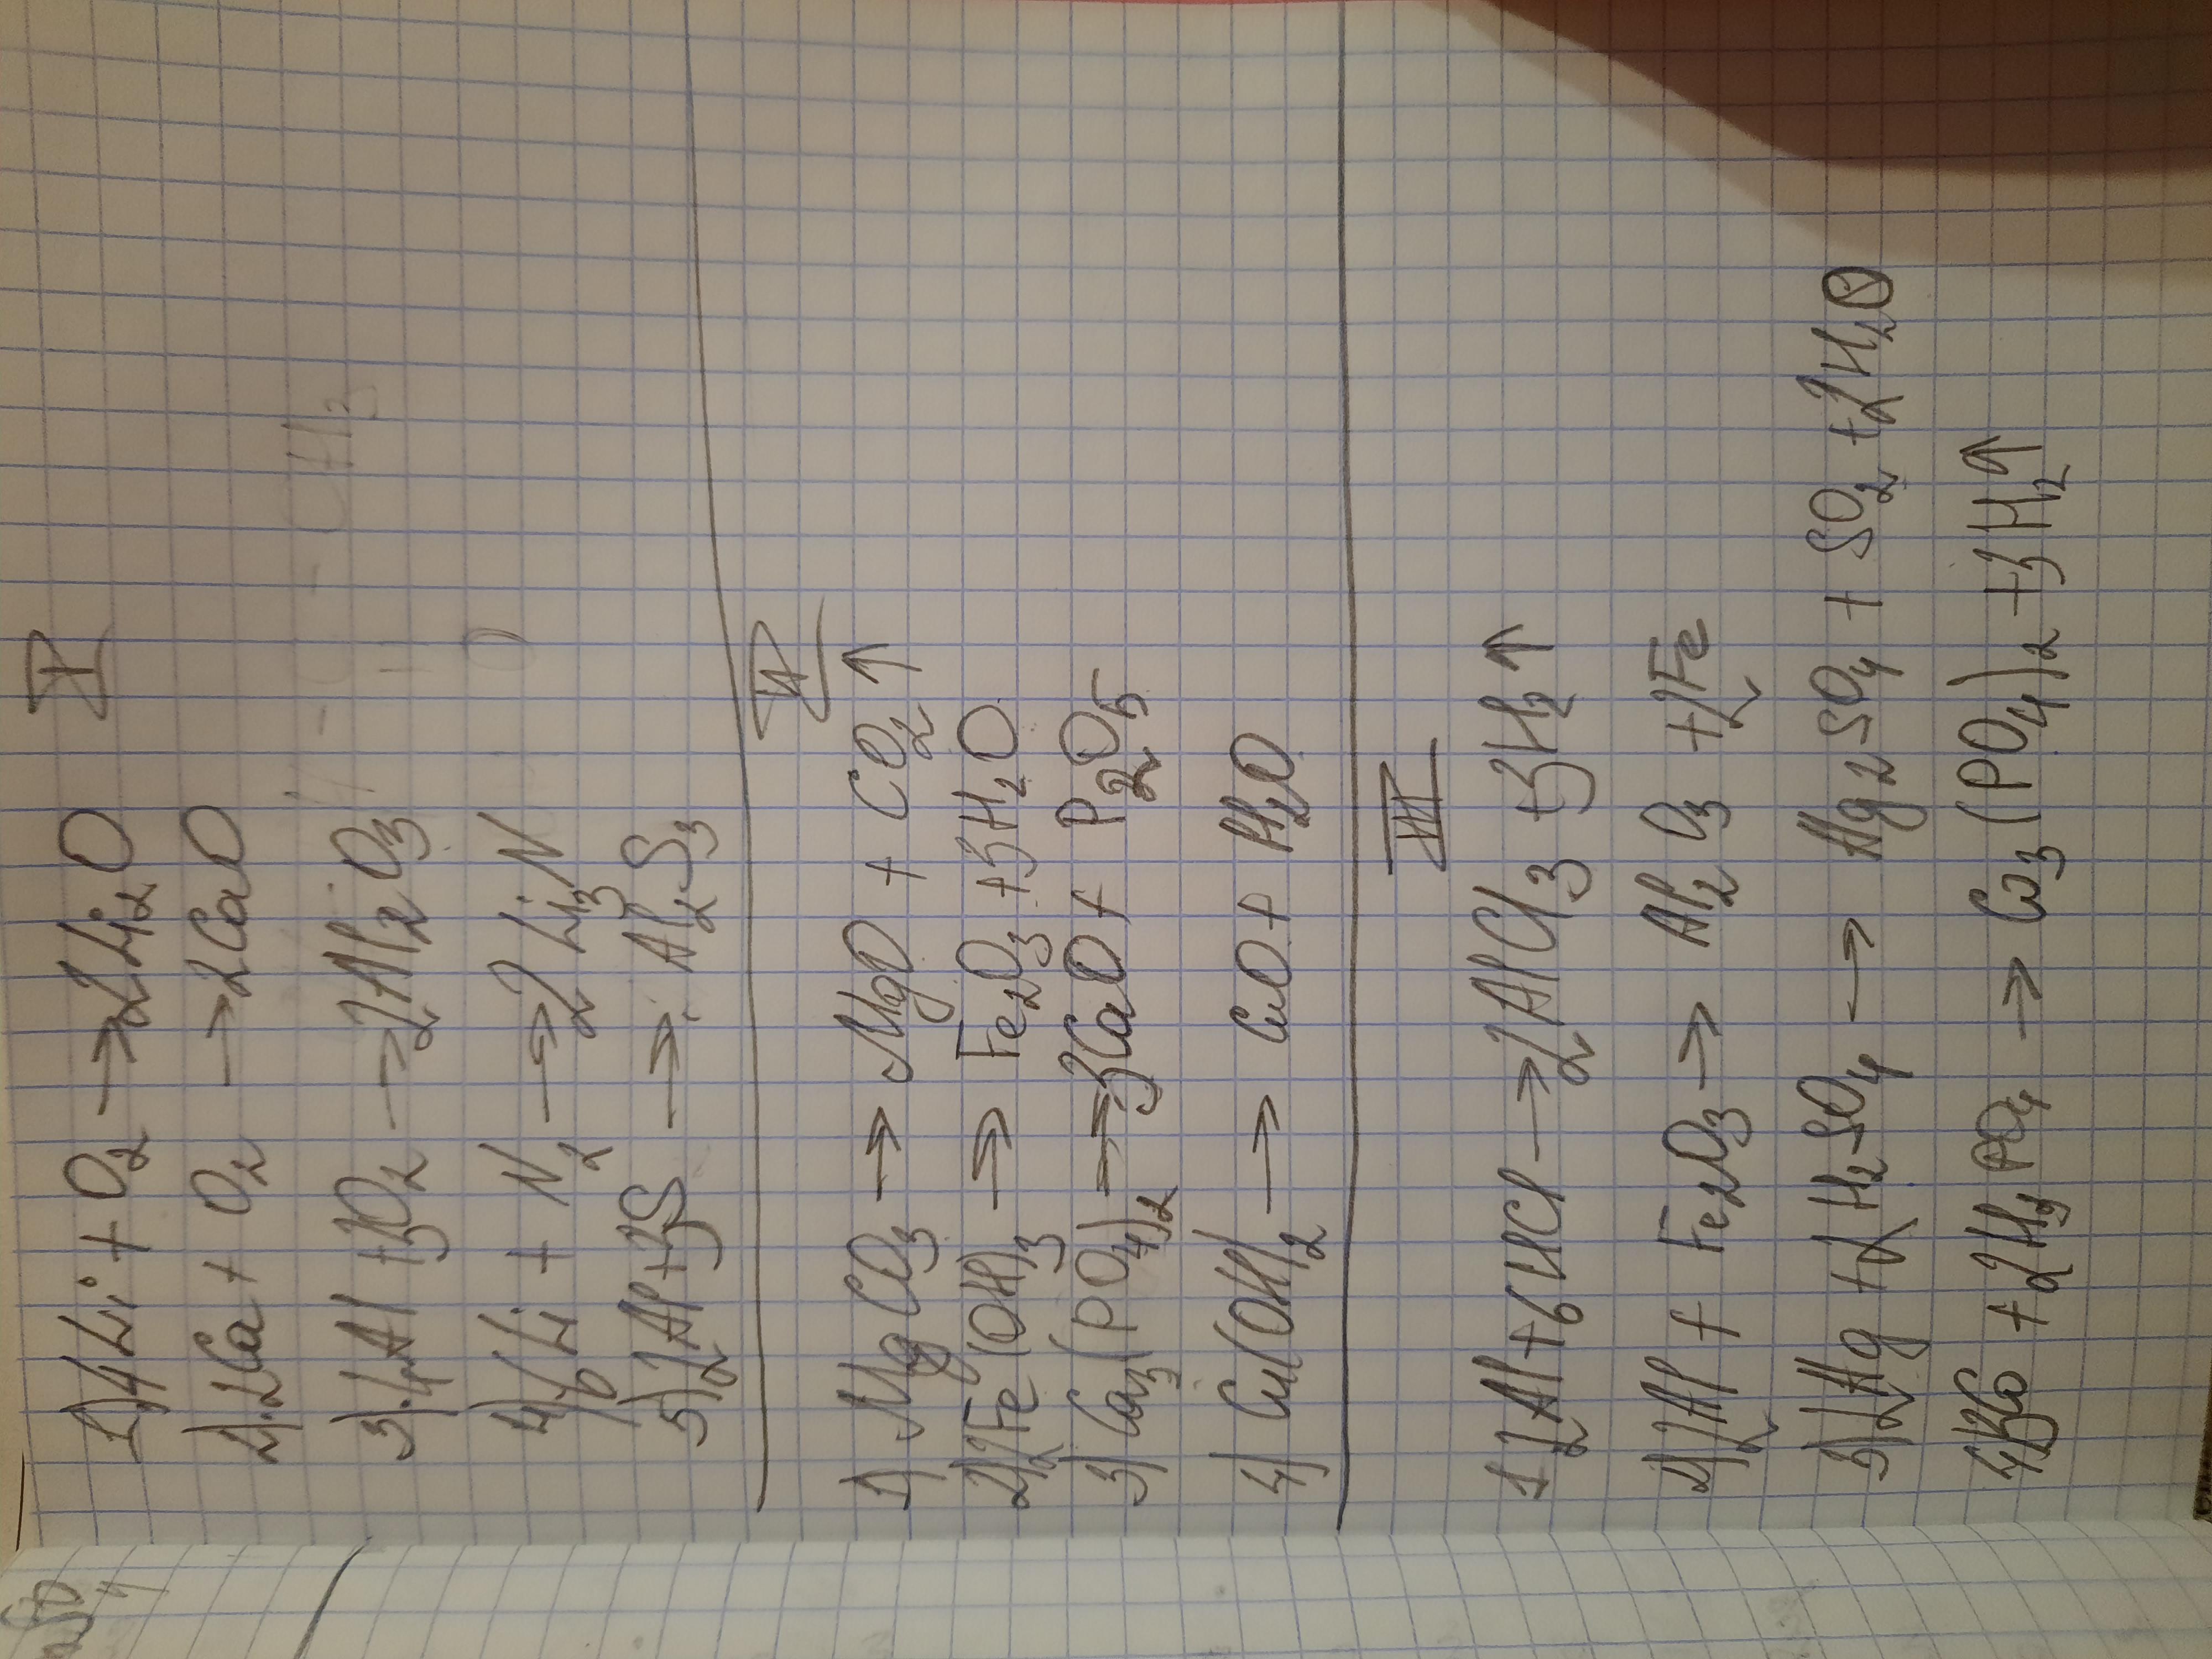 I
1) 4Li + O₂ → 2Li₂O
2) 2Ca + O₂ → 2CaO
3) 4Al + 3O₂ → 2Al₂O₃
4) 6Li + N₂ → 2Li₃N
5) 2Al + 3S → Al₂S₃
II
1) MgCO₃ → MgO + CO₂ ↑
2) 2Fe(OH)₃ → Fe₂O₃ + 3H₂O
3) Ca₃(PO₄)₂ → 3CaO + P₂O₅
4) Cu(OH)₂ → CuO + H₂O
III
1) 2Al + 6HCl → 2AlCl₃ + 3H₂ ↑
2) 2Al + Fe₂O₃ → Al₂O₃ + 2Fe
3) 2Ag + 2H₂SO₄ → Ag₂SO₄ + SO₂ + 2H₂O
4) 3Co + 2H₃PO₄ → Co₃(PO₄)₂ + 3H₂ ↑